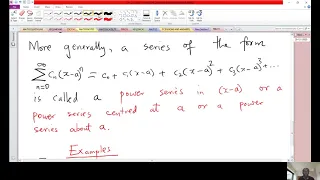 More generally, a series of the form
∞
∑ cₙ(x-a)ⁿ = c₀ + c₁(x-a) + c₂(x-a)² + c₃(x-a)³ + ...
n=0
is called a power series in (x-a) or a
power series centred at a or a power
series about a.
Examples